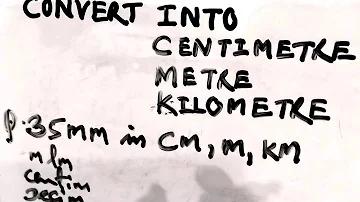 CONVERT INTO
CENTIMETRE
METRE
KILOMETRE
35mm in CM, m, KM